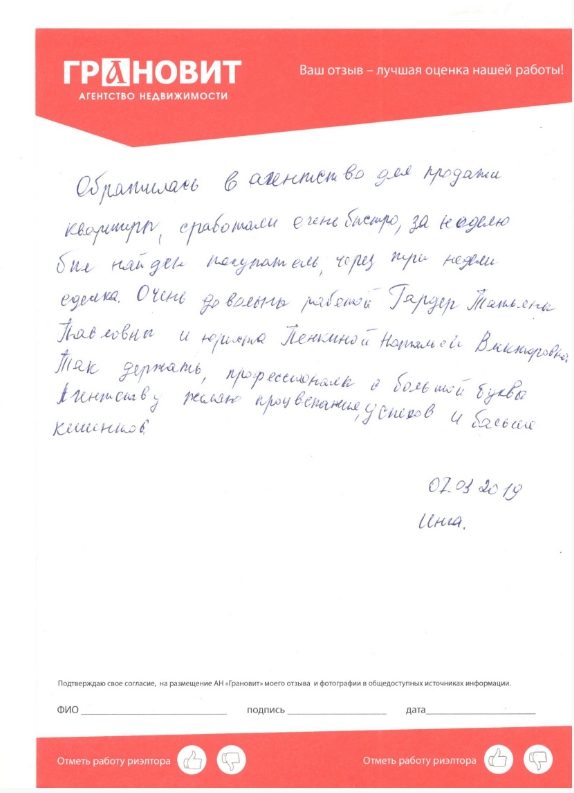 ГРАНОВИТ
АГЕНТСТВО НЕДВИЖИМОСТИ
Ваш отзыв – лучшая оценка нашей работы!
Обратилась в агентство для продажи
квартиры, сработали очень быстро, за неделю
был найден покупатель, через три недели
сделка. Очень довольны работой Гардер Татьяны
Павловны и юриста Пенкиной Натальей Викторовна
Так держать, профессионалы с большой буквы
Агентству желаю процветания, успехов и больше
клиентов.
07.03 2019
Инга.
Подтверждаю свое согласие, на размещение АН «Грановит» моего отзыва и фотографии в общедоступных источниках информации.
ФИО ____ подпись ____ дата____
Отметь работу риэлтора Отметь работу риэлтора